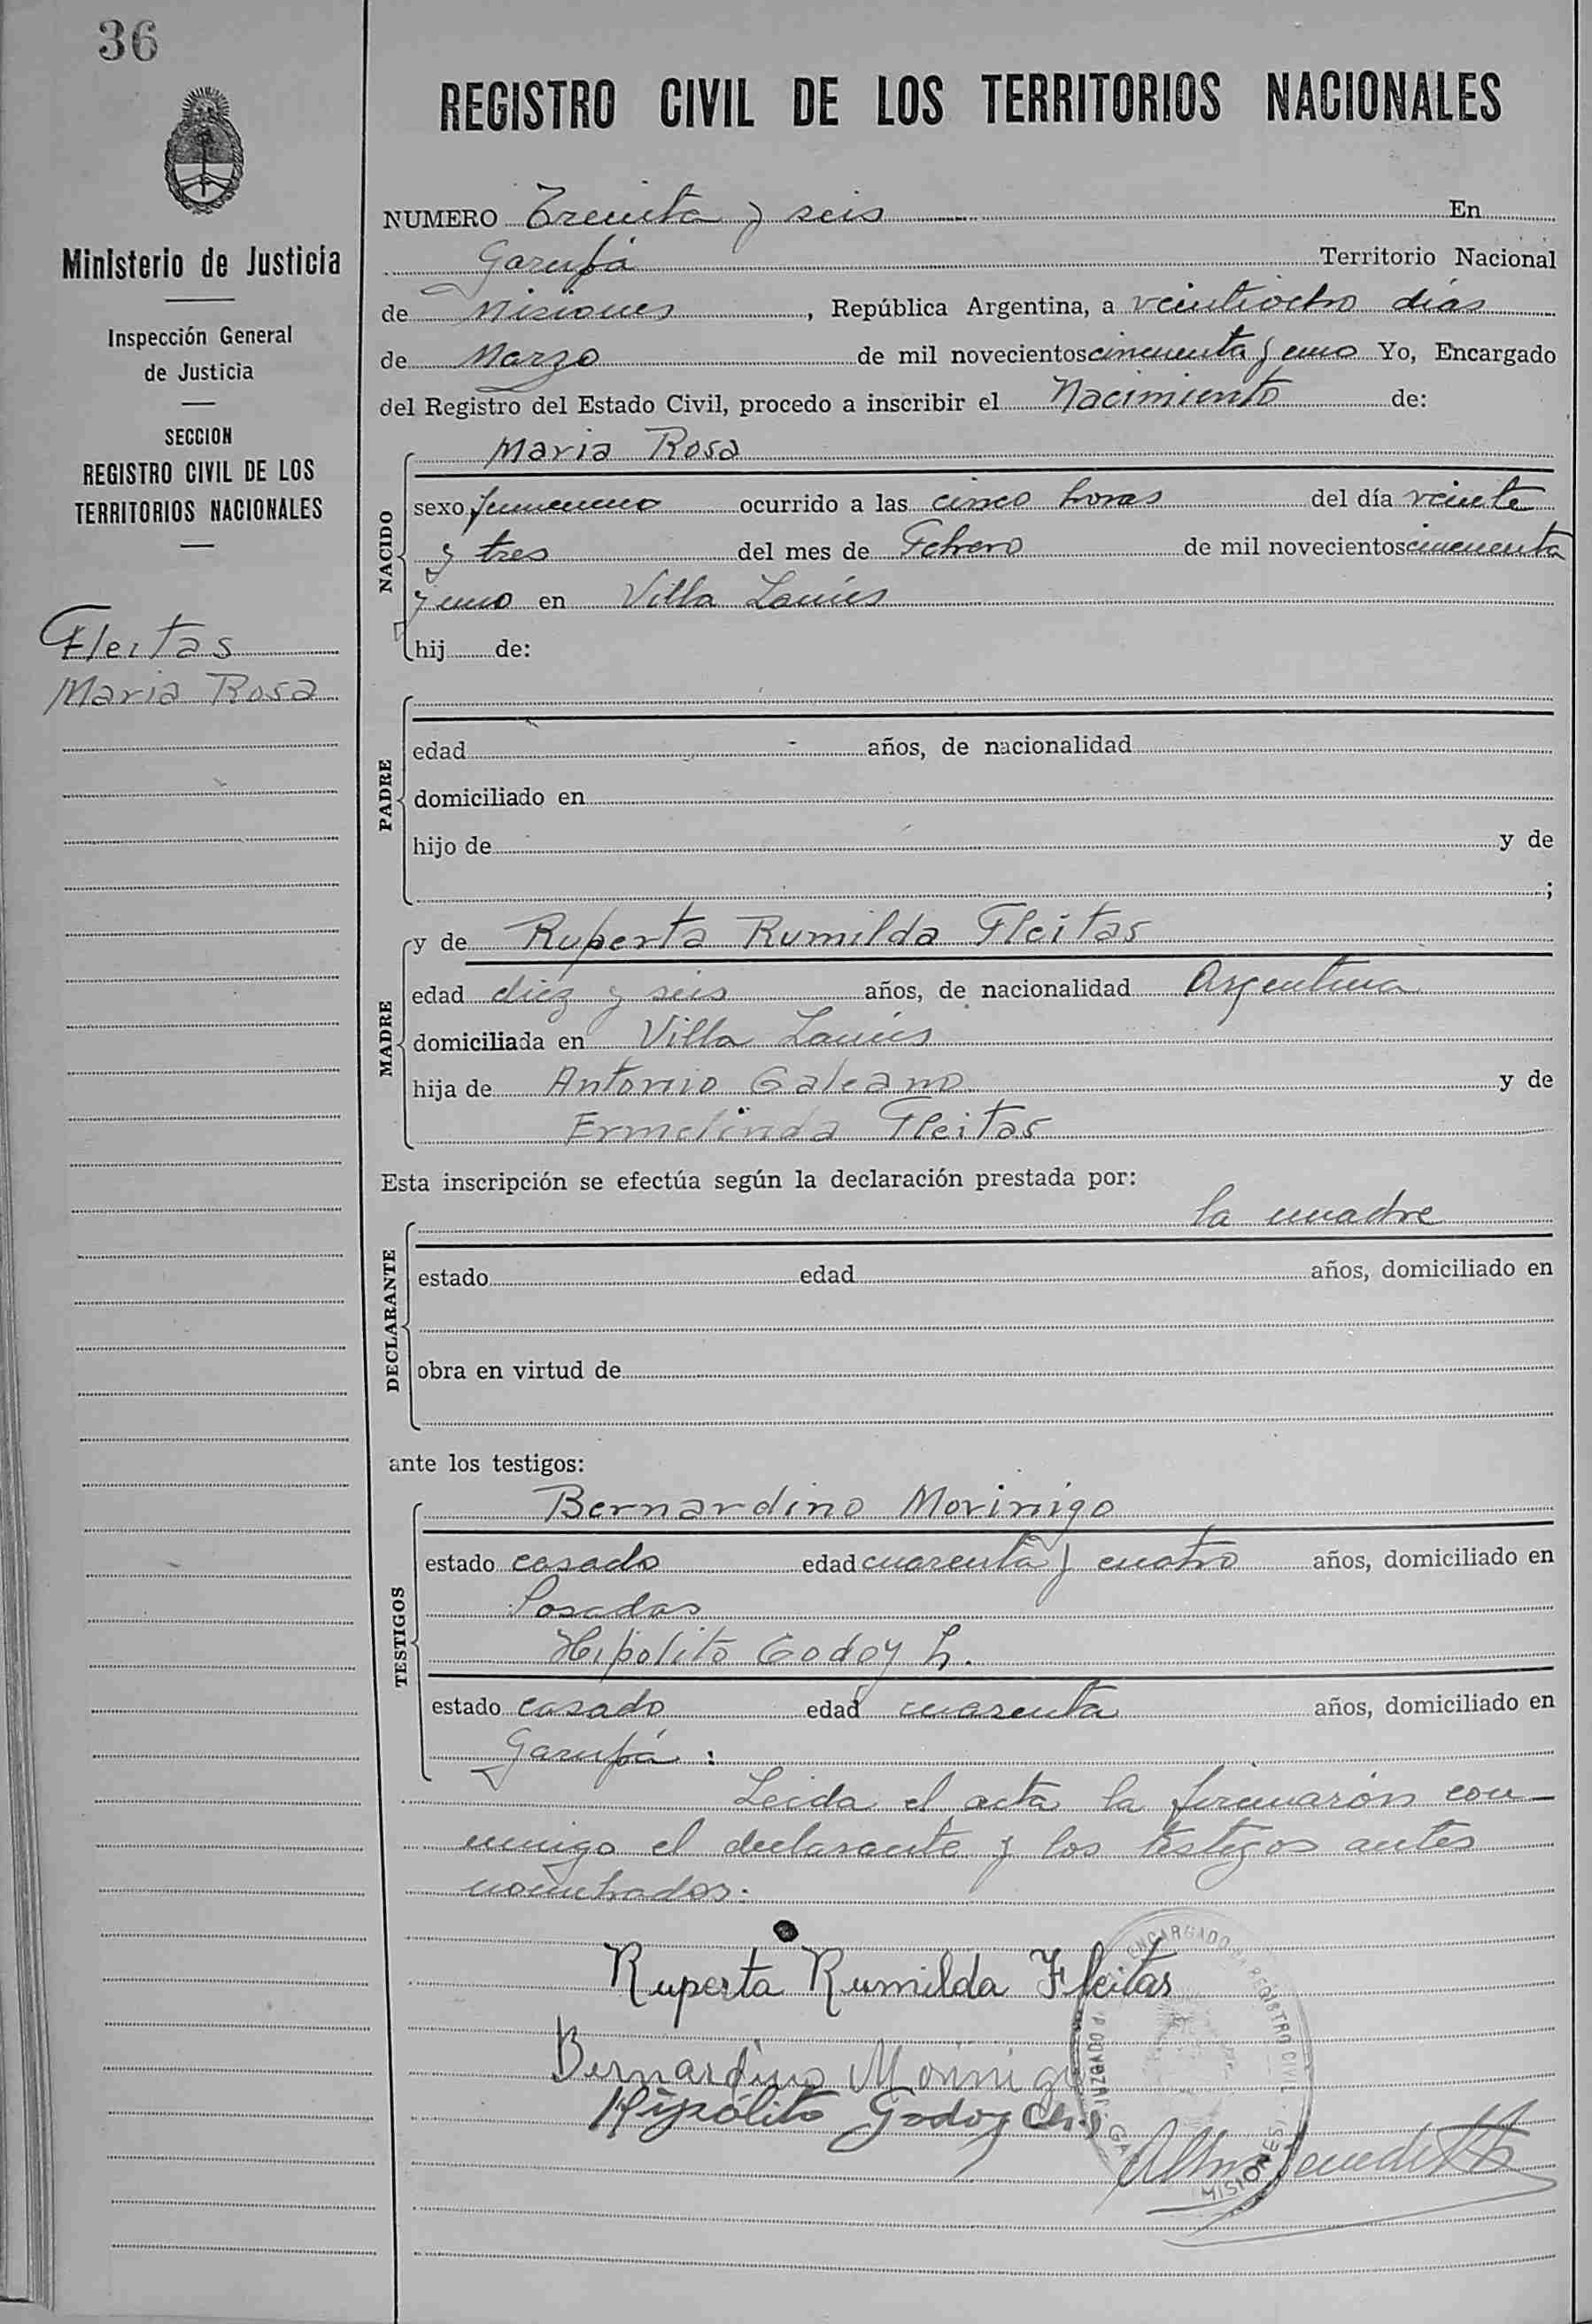 36
Ministerio de Justicia
Inspección General
de Justicia
SECCION
REGISTRO CIVIL DE LOS
TERRITORIOS NACIONALES
Fleitas
Maria Rosa
REGISTRO CIVIL DE LOS TERRITORIOS NACIONALES
NUMERO Treinta y seis En
Garupá Territorio Nacional
de Misiones, República Argentina, a veintiocho días
de Marzo de mil novecientos cincuenta y uno Yo, Encargado
del Registro del Estado Civil, procedo a inscribir el Nacimiento de:
NACIDO
Maria Rosa
sexo femenino ocurrido a las cinco horas del día veinte
y tres del mes de Febrero de mil novecientos cincuenta
y uno en Villa Lanús
hij de:
PADRE
edad años, de nacionalidad
domiciliado en
hijo de y de
;
MADRE
y de Ruperta Rumilda Fleitas
edad diez y seis años, de nacionalidad Argentina
domiciliada en Villa Lanús
hija de Antonio Galeano y de
Ermelinda Fleitas
Esta inscripción se efectúa según la declaración prestada por:
DECLARANTE
la madre
estado edad años, domiciliado en
obra en virtud de
ante los testigos:
TESTIGOS
Bernardino Morinigo
estado casado edad cuarenta y cuatro años, domiciliado en
Posadas
Hipolito Godoy h.
estado casado edad cuarenta años, domiciliado en
Garupá :
Leida el acta la firmarón con
migo el declarante y los testigos antes
nombrados.
Ruperta Rumilda Fleitas
Bernardino Morinigo
Hipólito Godoy
ENCARGADO REGISTRO CIVIL
JUZGADO DE P
MISIONES